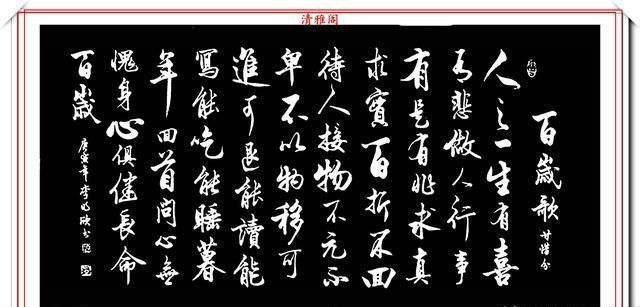 清雅阁
百歲歌 甘惜分
人之一生有喜
有悲做人行事
有是有非求真
求實百折不回
待人接物不亢不
卑不以物移可
進可退能讀能
寫能吃能睡暮
年回首問心無
愧身心俱健長命
百歲
庚寅年李